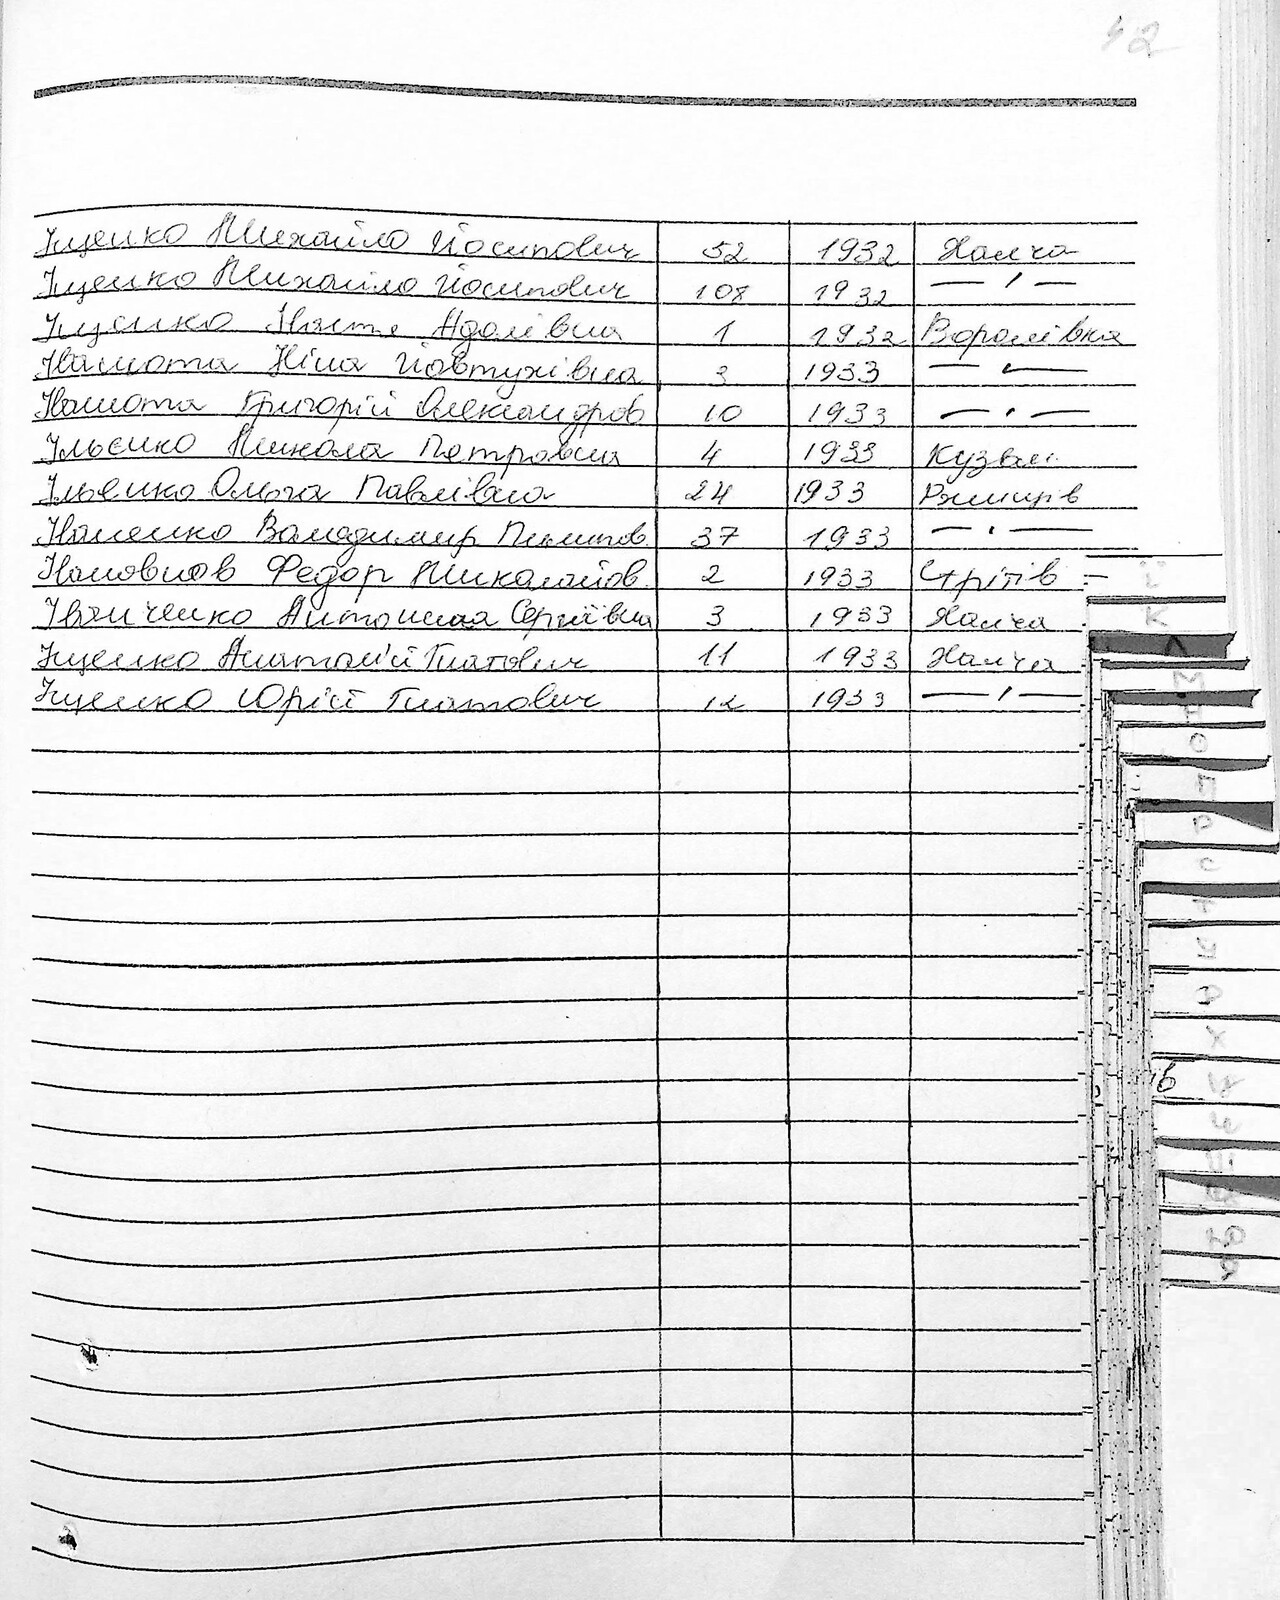 42
Іщенко Михайло Йосипович 52 1932 Халча
Іщенко Михайло Йосипович 108 1932 — ' —
Іщенко Настя Адамівна 1 1932 Воромівка
Івашота Ніна Йовтухівна 3 1933 — ' —
Івашота Григорій Олександров 10 1933 — ' —
Ільєнко Микола Петровна 4 1933 Кузьм.
Ільєнко Ольга Павлівна 24 1933 Ржищів
Іваненко Володимир Пилипов. 37 1933 — ' —
Федор Миколайов. 2 1933 Стрітів
Іваниченко Антонина Сергіївна 3 1933 Халча
Іщенко Анатолій Гнатович 11 1933 Халча
Іщенко Юрій Гнатович 12 1933 — ' —
Ї
К
Л
М
Н
О
П
Р
С
Т